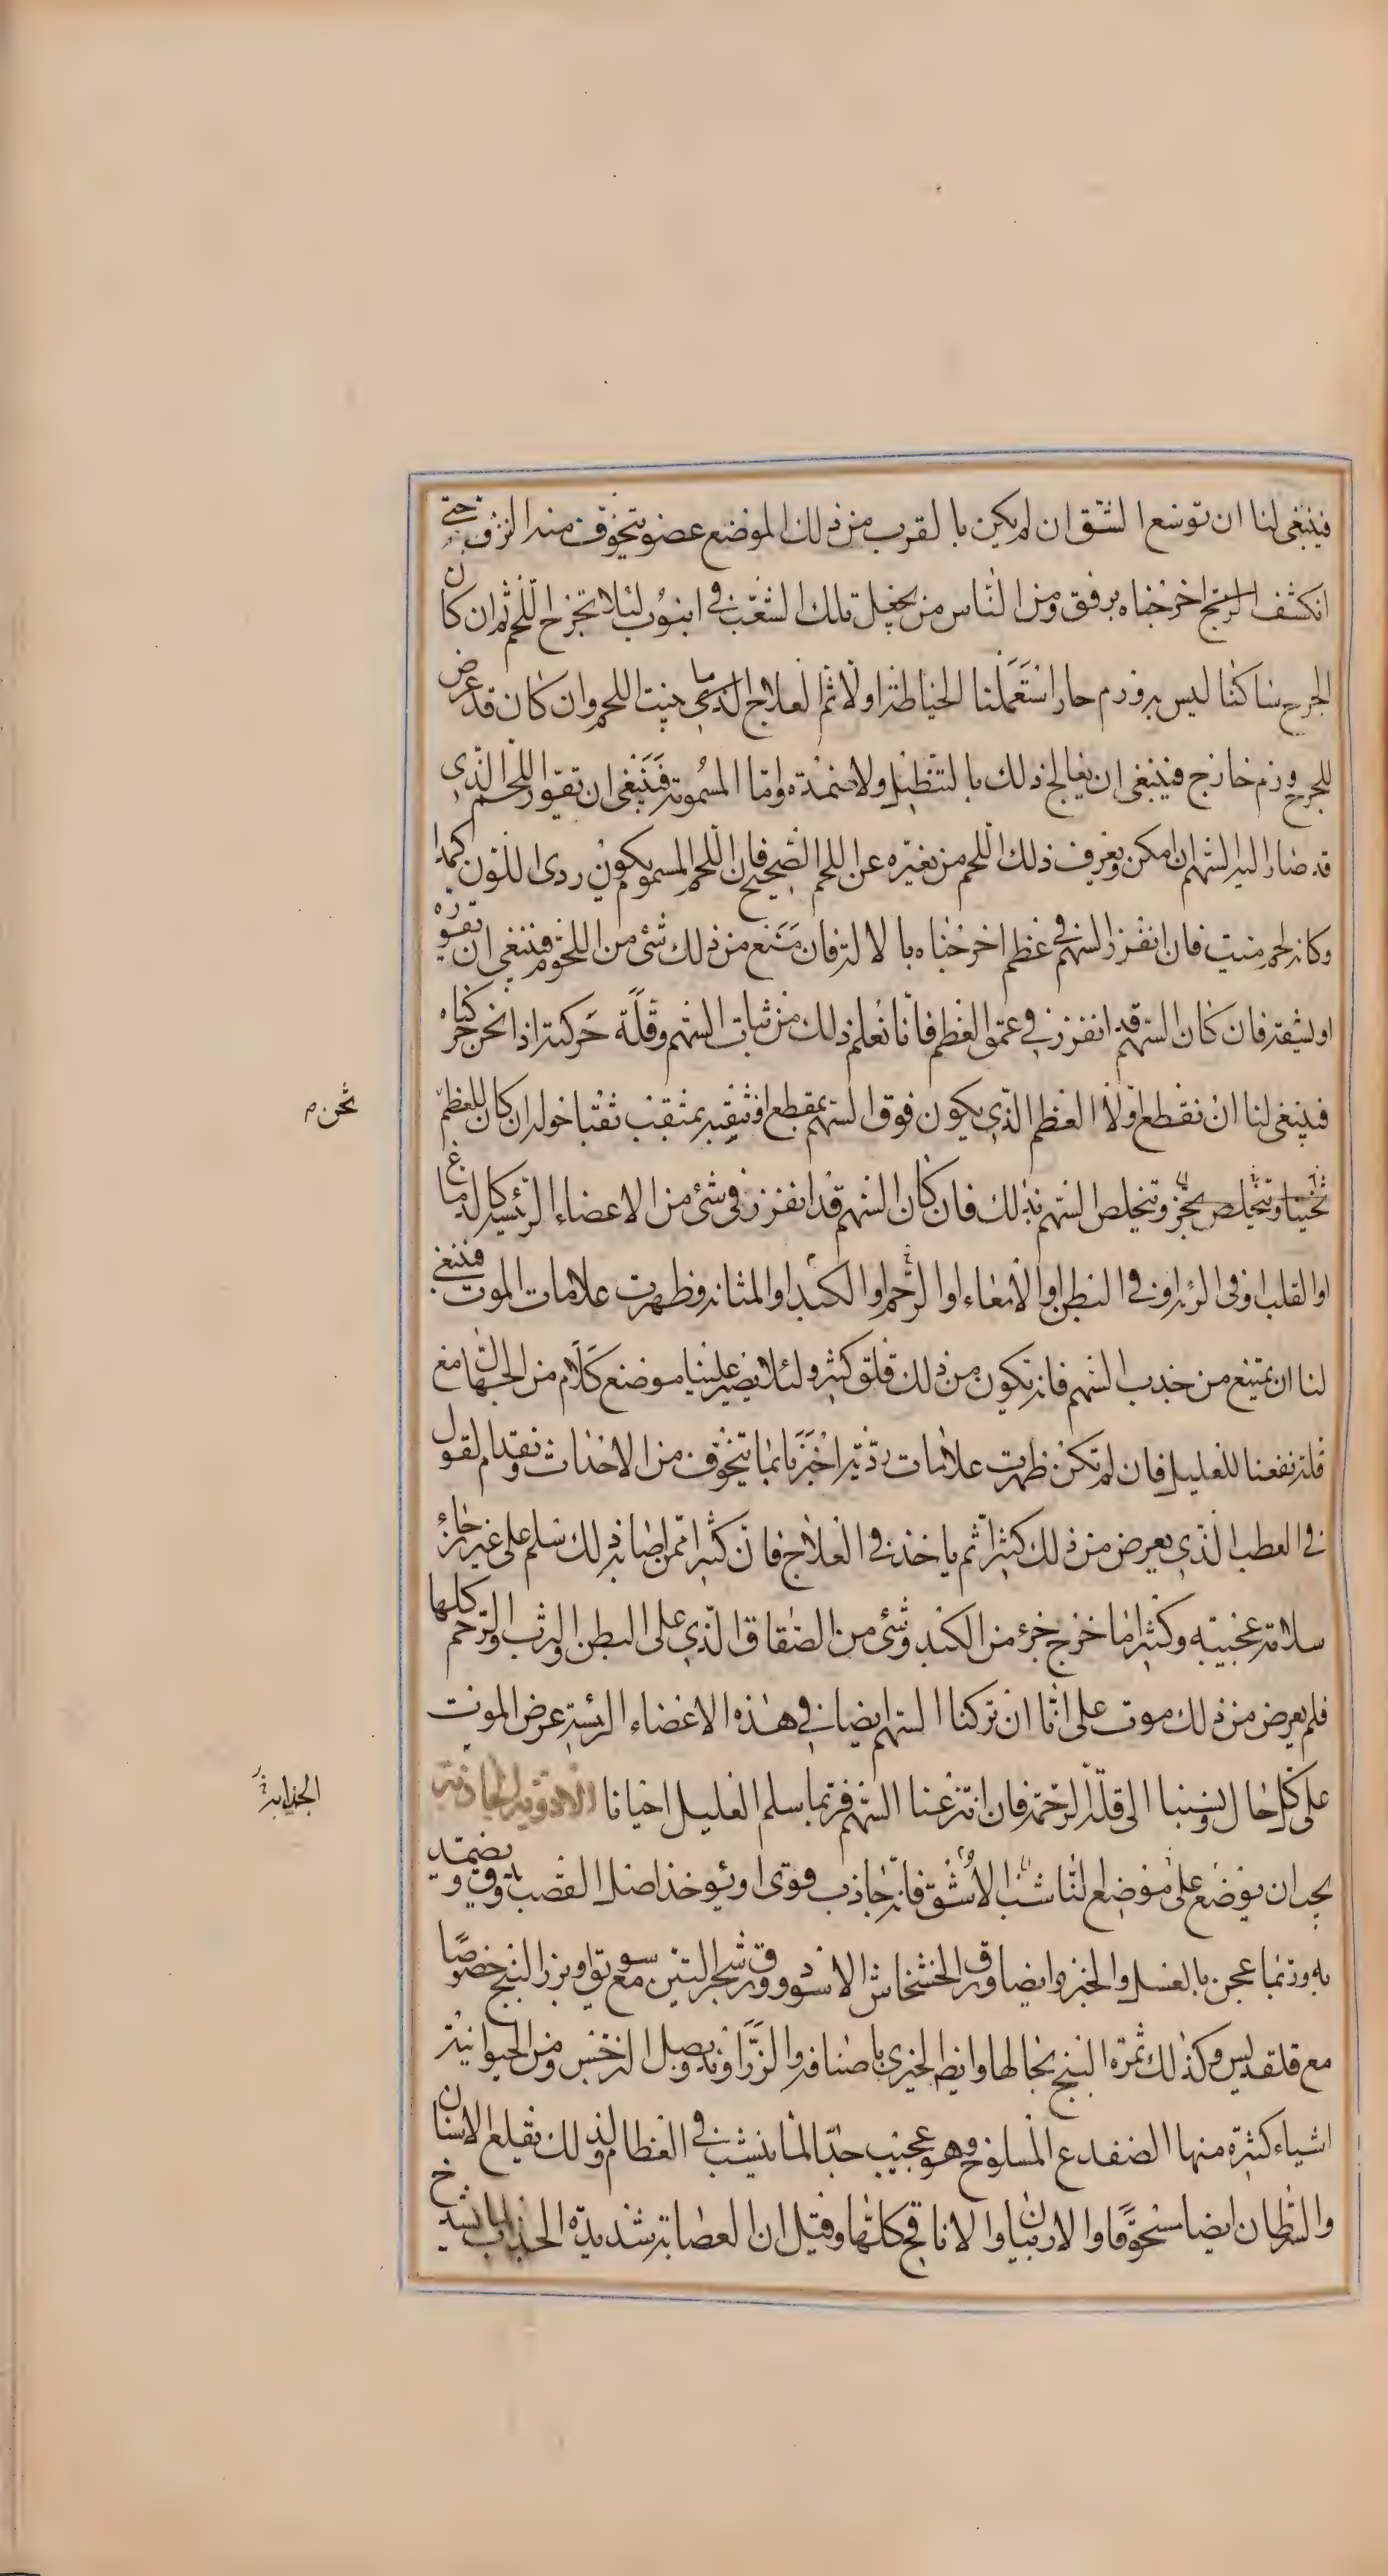 فينبغى لنا ان نوسع الشق ان لم يكن بالقرب من ذلك الموضع عضو يتخوف منه النزف حتى
انكشف الزج اخرجناه برفق ومن الناس من يجعل تلك الشعب فى انبوب لئلا تجرح اللحم ثم ان كان
الجرح ساكنا ليس به ورم حار استعملنا الخياطة اولا ثم العلاج الذى ينبت اللحم وان كان قد عرض
للجرح ورم خارج فينبغى ان يعالج ذلك بالتنطيل ولاضمدة واما المسمومة فينبغى ان تقور اللحم الذى
قد صار اليه السهم ان امكن ويعرف ذلك اللحم من تغيره عن اللحم الصحيح فان اللحم المسموم يكون ردى اللون كمدا
وكانه لحم ميت فان انغرز السهم فى عظم اخرجناه بالالة فان منع من ذلك شئ من اللحوم فينبغى ان نقوره
او نشقه فان كان السهم قد انغرز فى عمق العظم فانا نعلم ذلك من ثبات السهم وقلة حركته اذا نحن حركناه
فينبغى لنا ان نقطع اولا العظم الذى يكون فوق السهم بمقطع او نثقبه بمثقب ثقبا حوله ان كان للعظم
ثخن م
وتخلص السهم بذلك فان كان السهم قد انغرز فى شئ من الاعضاء الرئيسه كالدماغ
او القلب او فى الرئه او فى البطن او الامعاء او الرحم او الكبد او المثانه وظهرت علامات الموت فينبغى
لنا ان يمتنع من جذب السهم فانه تكون من ذلك قلق كثير ولئلا يصير علينا موضع كلام من الجهال مع
قلة نفعنا للعليل فان لم تكن ظهرت علامات ردية اخبرنا بما يتخوف من الاحداث ونقدم القول
فى العطب الذى يعرض من ذلك كثيرا ثم ياخذ فى العلاج فان كثيرا ممن اصابه ذلك سلم على غير رجاء
سلامة عجيبه وكثيرا ما خرج جزء من الكبد وشئ من الصفاق الذى على البطن والثرب والرحم كلها
فلم يعرض من ذلك موت على انا ان تركنا السهم ايضا فى هذه الاعضاء الرئيسة عرض الموت
على كل حال ونسبنا الى قلة الرحمة فان انتزعنا السهم فربما سلم العليل احيانا الادوية الجاذبة
الجذابة
يجب ان يوضع على موضع الناشب الاشق فانه جاذب قوى او يؤخذ اصل القصب يدق ويضمد
به وربما عجن بالعسل والخبز وايضا ورق الخشخاش الاسود وورق شجر التين مع سويق او بزر البنج خصوصا
مع قلقديس وكذلك ثمرة البنج بحالها وايضا الخيرى باصنافه والزراوند وبصل النرجس ومن الحيوانية
اشياء كثيرة منها الضفدع المسلوخ وهو عجيب جدا لما ينشب فى العظام ولذلك يقلع الاسنان
والسرطان ايضا مسحوقا والاربيان والانافح كلها وقيل ان العصاية شديدة الجذب لما